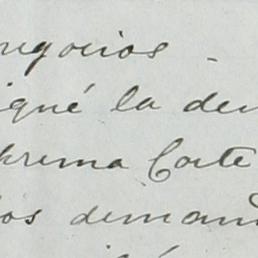 negocios -
iqué la den
prema Corte
los deman